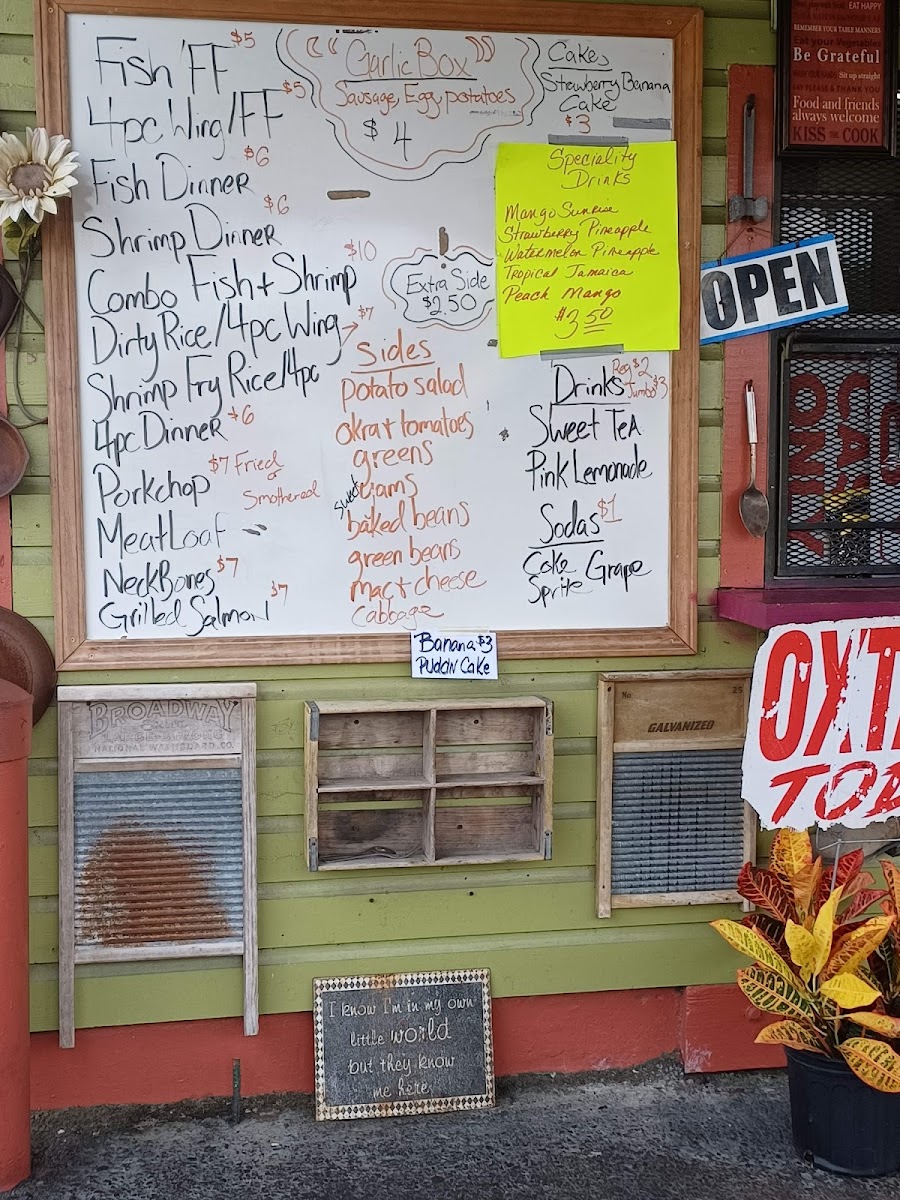 Fish/FF $5
4pc Wing/FF $5
Fish Dinner $6
Shrimp Dinner $6
Combo Fish + Shrimp $10
Dirty Rice/4pc Wing
Shrimp Fry Rice/4pc $7
4pc Dinner $6
Porkchop $7 Fried
or
Smothered
MeatLoaf
NeckBones $7
Grilled Salmon $7
Garlic Box
Sausage, Egg, potatoes
$4
Extra Side
$2.50
Sides
potato salad
okra + tomatoes
greens
sweet yams
baked beans
green beans
mac + cheese
Cabbage
Cakes
Strawberry Banana
Cake
$3
Speciality
Drinks
Mango Sunrise
Strawberry Pineapple
Watermelon Pineapple
Tropical Jamaica
Peach Mango
$3.50
Drinks Reg $2
Jumbo $3
Sweet Tea
Pink Lemonade
Sodas $1
Coke Grape
Sprite
Banana $3
Puddin Cake
EAT HAPPY
REMEMBER YOUR TABLE MANNERS
Eat your Vegetables
Be Grateful
Sit up straight
PLEASE & THANK YOU
Food and friends
always welcome
KISS THE COOK
OPEN
CASH
ONLY
OXT
TOD
BROADWAY
NATIONAL WASHBOARD CO.
No 25
GALVANIZED
I know I'm in my own
little world
but they know
me here.